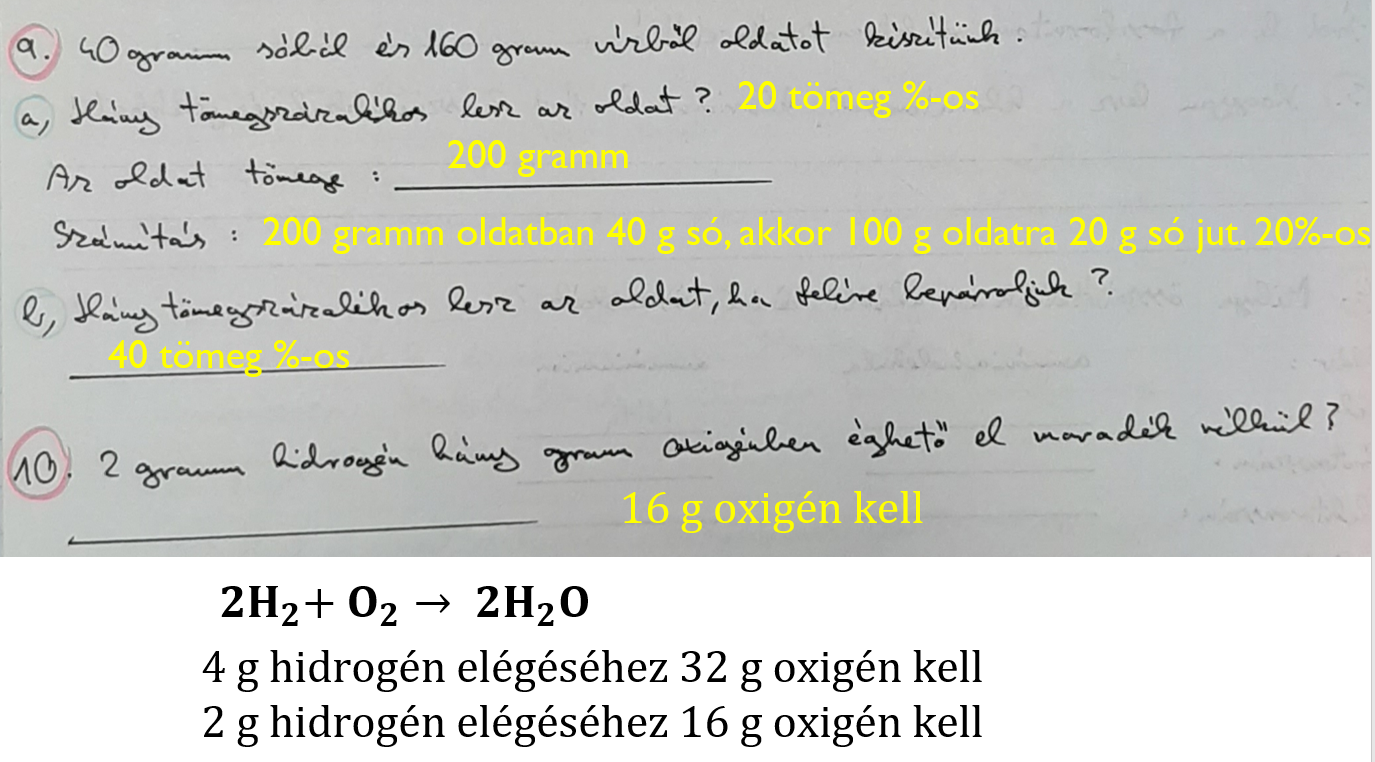 9. 40 gramm sóból és 160 gramm vízből oldatot készítünk.
a, Hány tömegszázalékos lesz az oldat? 20 tömeg %-os
Az oldat tömege : 200 gramm
Számítás : 200 gramm oldatban 40 g só, akkor 100 g oldatra 20 g só jut. 20%-os
b, Hány tömegszázalékos lesz az oldat, ha felére bepároljuk?
40 tömeg %-os
10. 2 gramm hidrogén hány gramm oxigénben éghető el maradék nélkül?
16 g oxigén kell
2H₂+ O₂ → 2H₂O
4 g hidrogén elégéséhez 32 g oxigén kell
2 g hidrogén elégéséhez 16 g oxigén kell